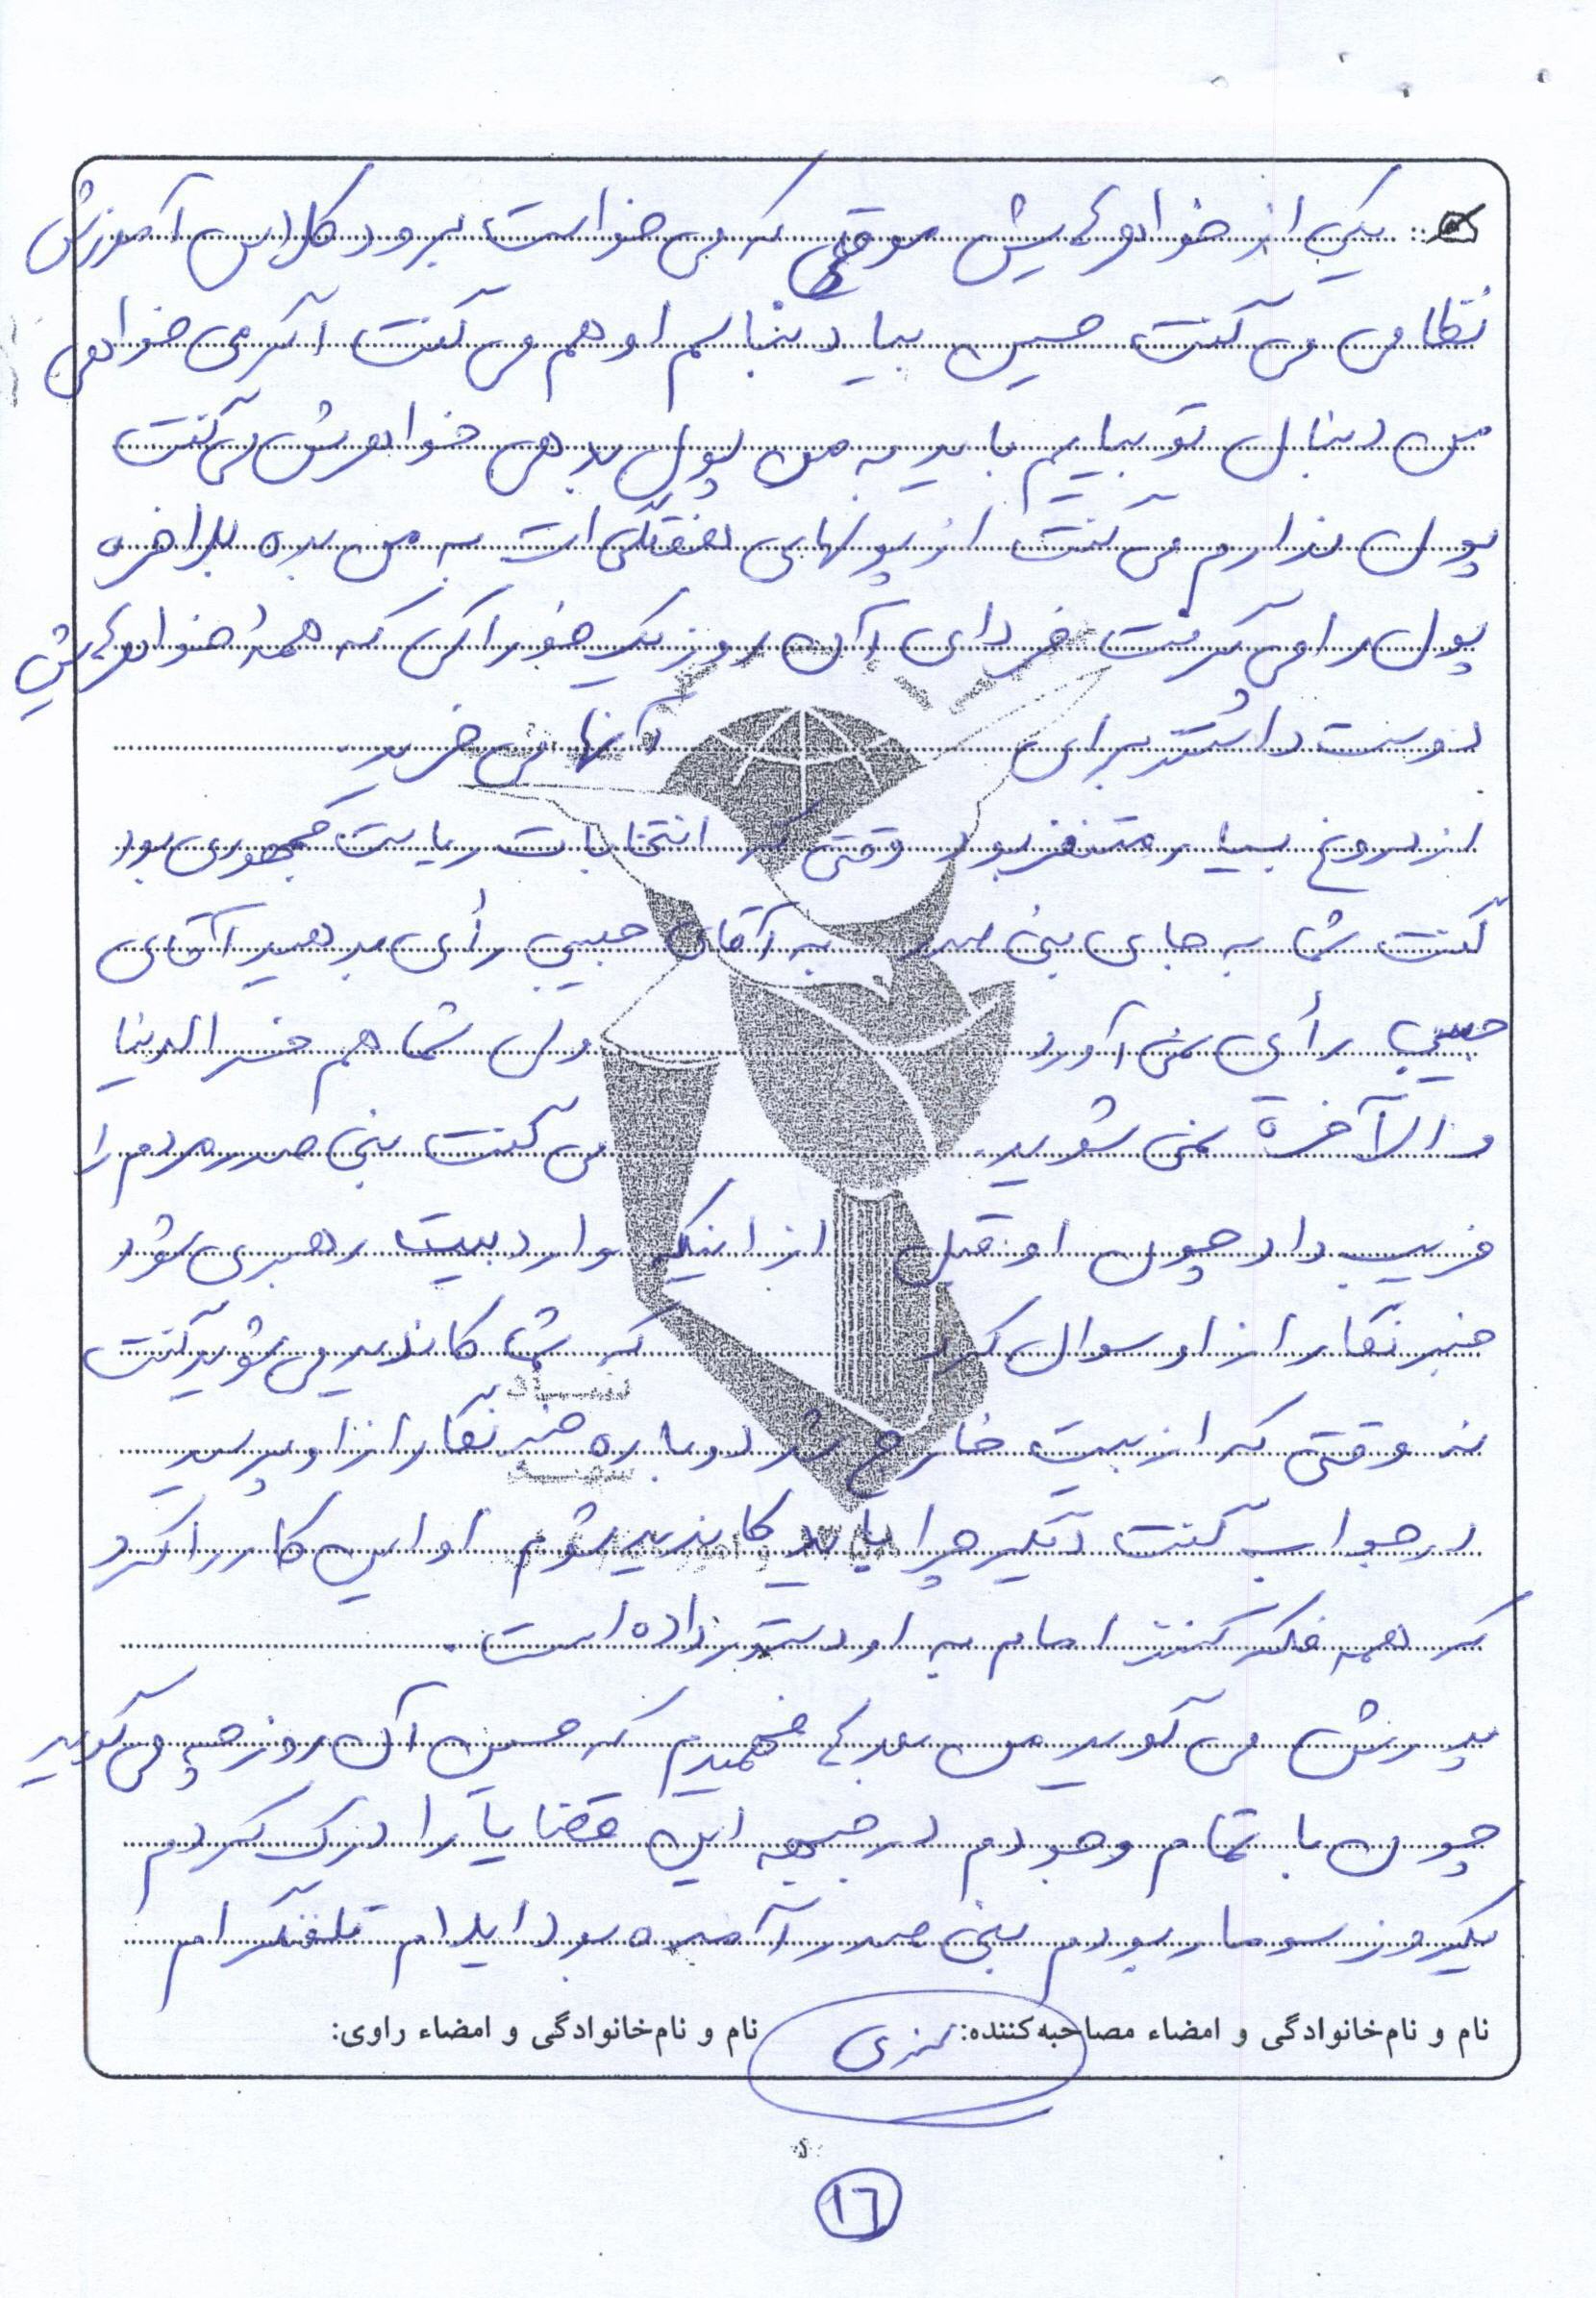 یکی از خواهرهایش موقعی که می خواست برود کلاس آموزش
نظامی می گفت حسین بیا دنبالم او هم می گفت اگر می خواهی
من دنبال تو بیایم باید به من پول بدهی خواهرش می گفت
پول ندارم می گفت از پولهای هفتگی ات به من بده بلاخره
پول را می گرفت فردای آن روز یک خوراکی که همهٔ خواهرهایش
دوست داشتند برای آنها می خرید.
از دروغ بسیار متنفر بود وقتی که انتخابات ریاست جمهوری بود
گفت شما به جای بنی صدر به آقای حبیبی رأی بدهید آقای
حبیبی رأی نمی آورد ولی شما هم خسرالدنیا
والآخرة نمی شوید. می گفت بنی صدر مردم را
فریب داد چون او قبل از اینکه وارد بیت رهبری شود
خبرنگار از او سوال کرد که شما کاندید می شوید گفت
نه وقتی که از بیت خارج شد دوباره خبرنگار از او پرسید
درجواب گفت دیگر چرا باید کاندید شوم او این کار را کرد
که همه فکر کنند امام به او دستور داده است.
پدرش می گوید من بعدها فهمیدم که حسین آن روز چه می گوید
چون با تمام وجودم در جبهه این قضایا را درک کردم
یکروز سومار بودم بنی صدر آمده بود ایلام تلفنگرام
نام و نام‌خانوادگی و امضاء مصاحبه‌کننده: نام و نام‌خانوادگی و امضاء راوی:
۱۶